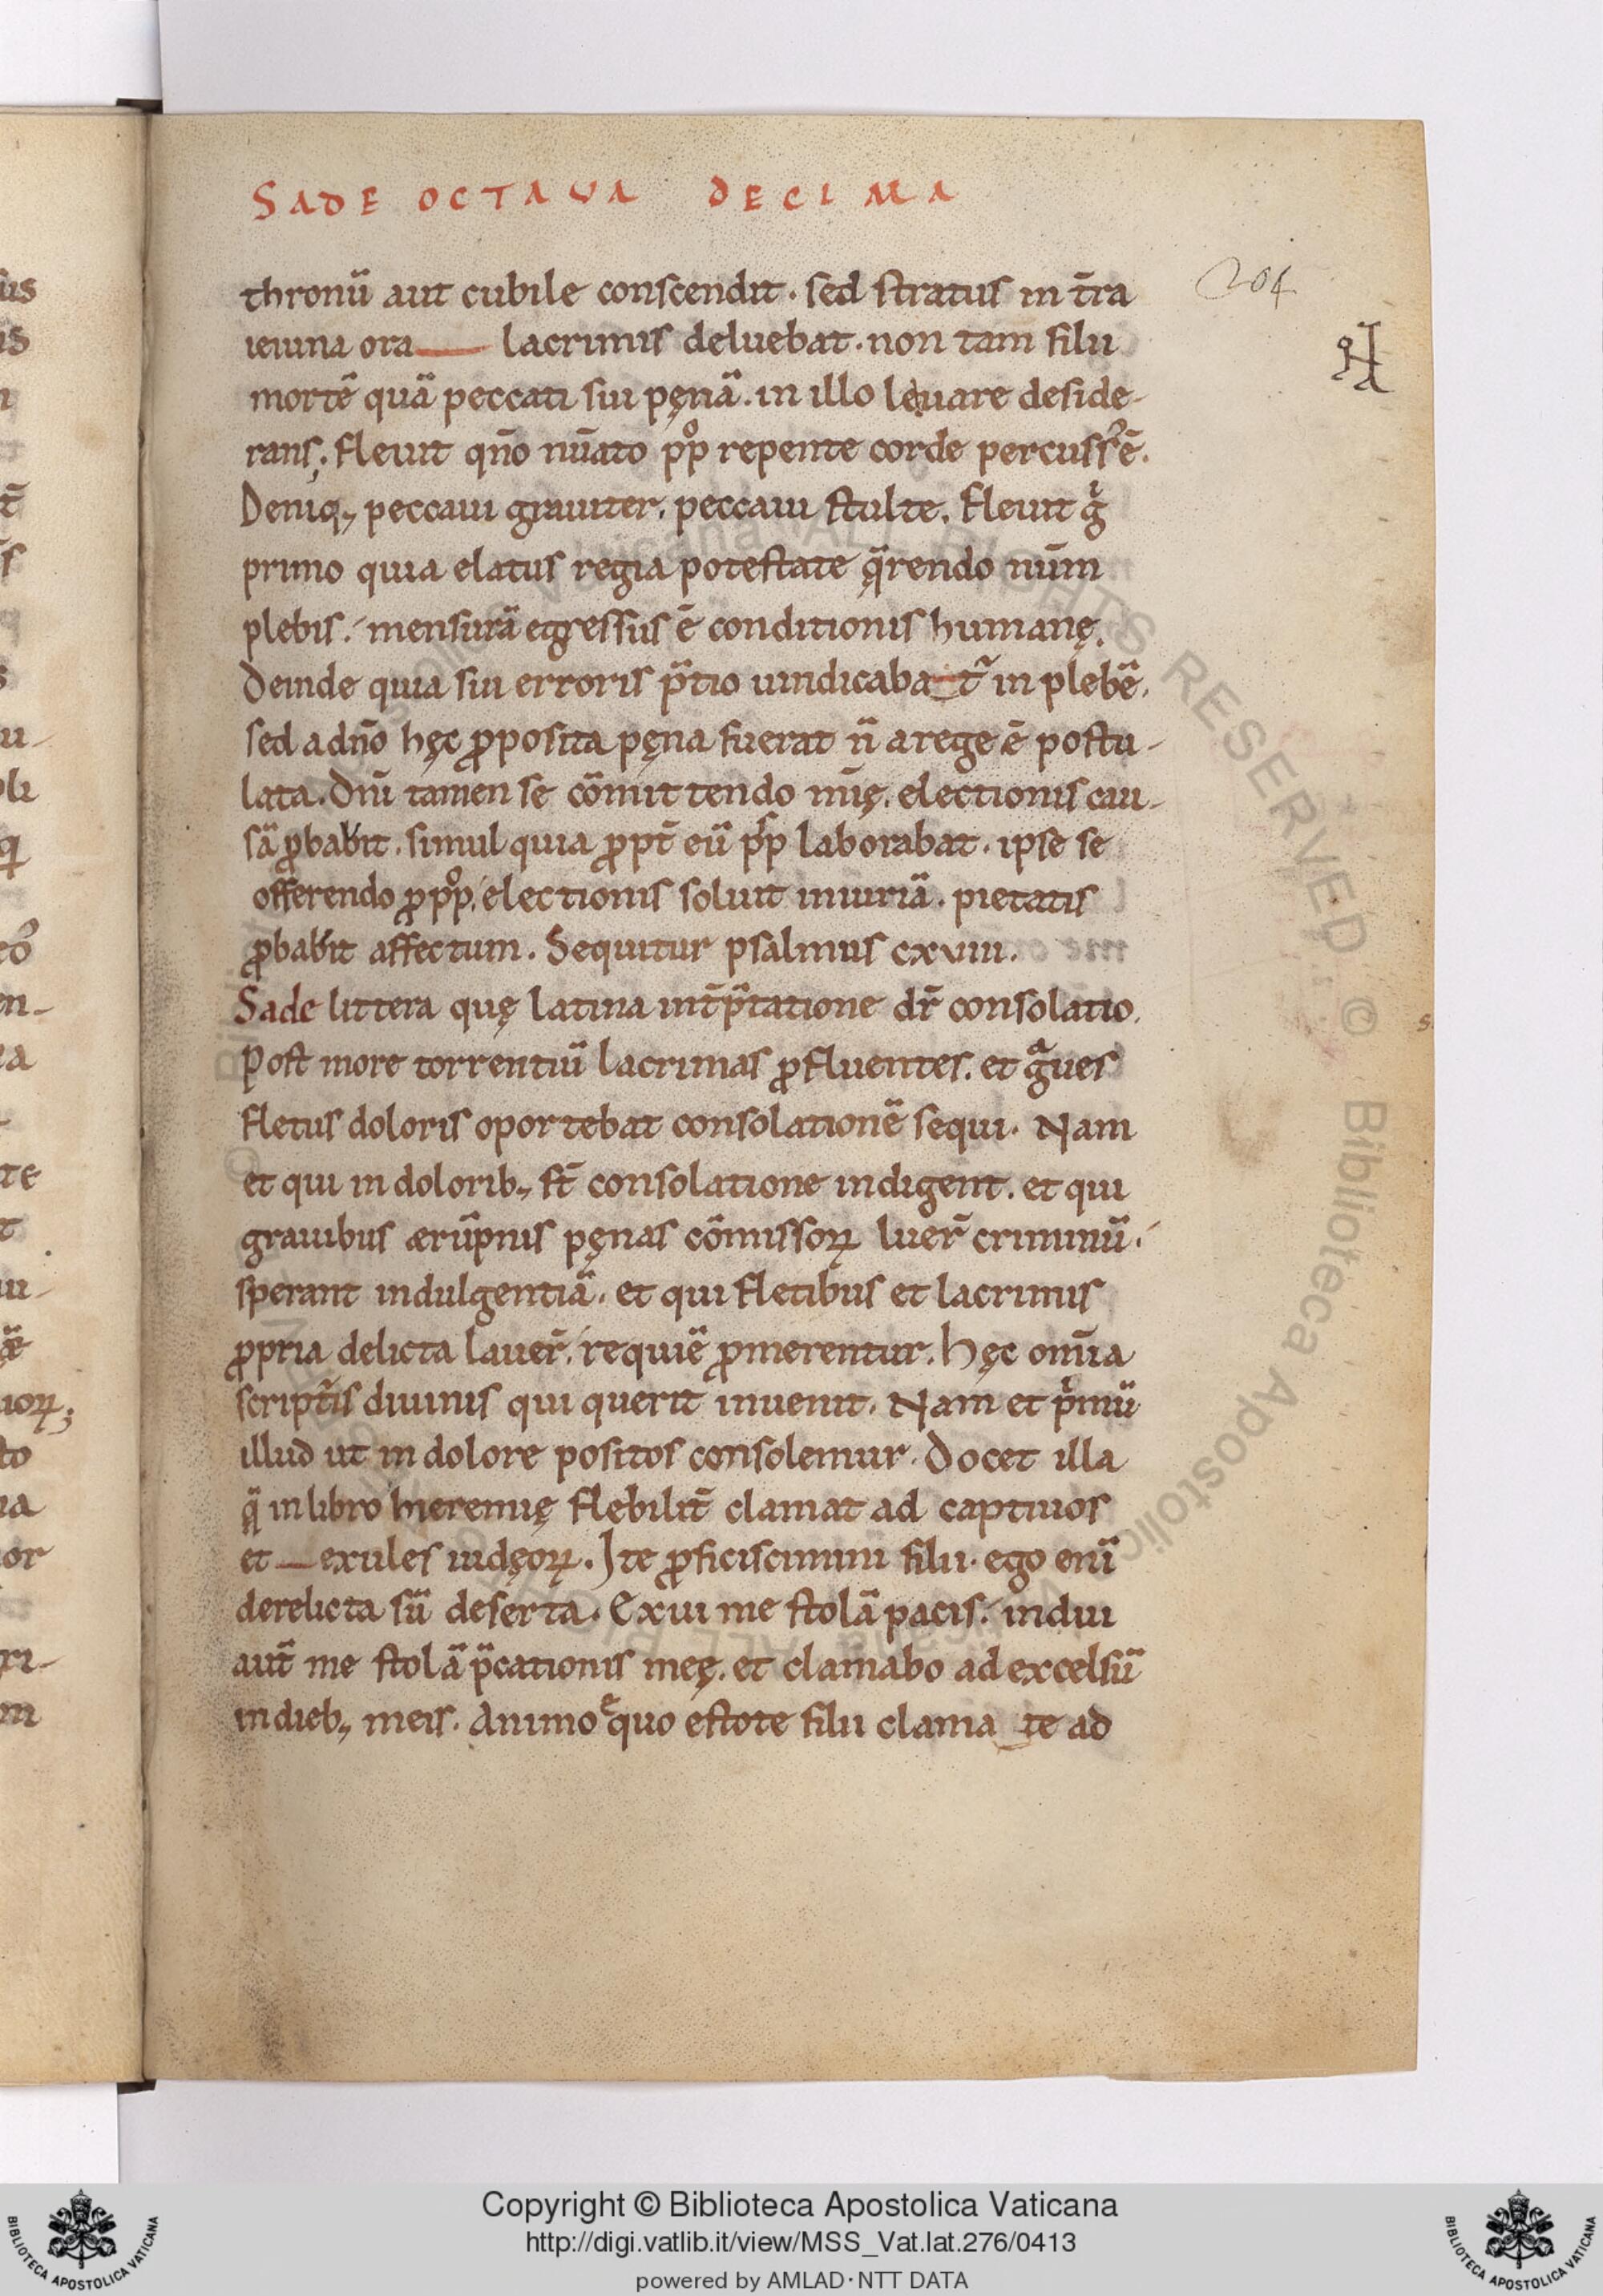 SADE OCTAVA DECIMA
204
thronū aut cubile conscendit. sed stratus in t̄ra
ieiuna ora lacrimis deluebat. non tam filii
mortē quā peccati sui pęnā. in illo leuare deside-
rans; fleuit qn̄o nūato pp̊ repente corde percussꝰ ē.
Deniq; peccaui grauiter. peccaui stulte. fleuit gͥ
primo quia elatus regia potestate q̄rendo nūm
plebis. mensurā egressus ē conditionis humanę.
Deinde quia sui erroris p̄tio uindicabat᷑ in plebē.
sed adn̄o hęc ꝓposita pęna fuerat n̄ arege ē postu-
lata. Dn̄i tamen se cōmittendo mīę. electionis cau-
sā ꝓbabit. simul quia ꝓpt̄ eū laborabat. ipse se
offerendo ꝓ pp̊. electionis soluit iniuriā. pietatis
ꝓbabit affectum. Sequitur psalmus cxviii.
Sade littera quę latina int̄p̄tatione dr̄ consolatio.
Post more torrentiū lacrimas ꝓfluentes. et gͣues
fletus doloris oportebat consolationē sequi. Nam
et qui in dolorib; st̄ consolatione indigent. et qui
grauibus ærūpnis pęnas cōmissoꝝ luer̄ criminū.
sperant indulgentiā. et qui fletibus et lacrimis
ꝓpria delicta lauer̄. requiē ꝓmerentur. hęc om̄ia
script̄is diuinis qui querit inuenit. Nam et pͥmū
illud ut in dolore positos consolemur. Docet illa
q̄ in libro hieremię flebilit̄ clamat ad captiuos
et exules iudęoꝝ. Ite ꝓficiscimini filii. ego enī
derelicta sū deserta. Exui me stolā pacis. indui
aut̄ me stolā p̄cationis meę. et clamabo ad excelsū
in dieb; meis. Animo ęquo estote filii clamate ad
Copyright © Biblioteca Apostolica Vaticana
http://digi.vatlib.it/view/MSS_Vat.lat.276/0413
powered by AMLAD·NTT DATA